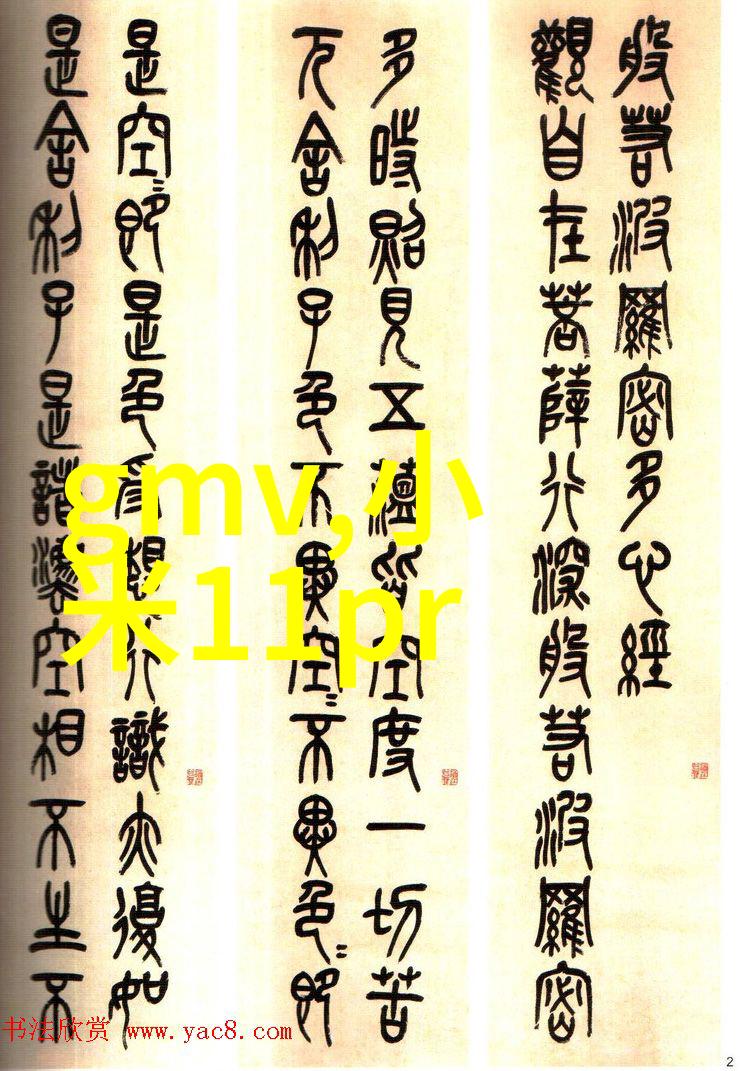 般若波羅密多心經
觀自在菩薩行深般若波羅密
多時照見五蘊皆空度一切苦
厄舍利子色不異空〻不異色〻即
是空〻即是色受想行識亦復如
是舍利子是諸法空相不生不
gmv,小
米11pr
书法欣赏 www.yac8.com
2